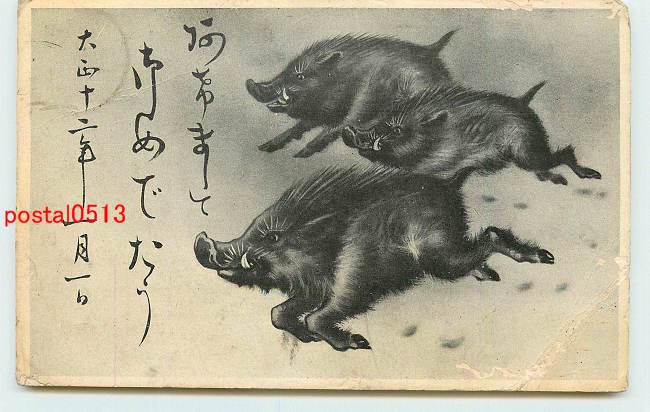 阿希まして
御めでたう
大正十二年一月一日
postal0513